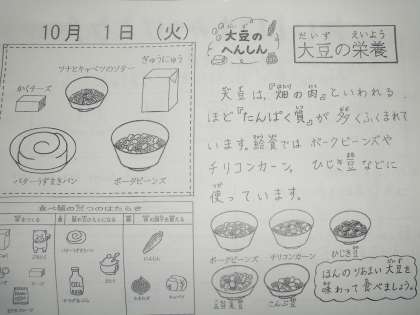 10月 1日 (火)
ツナとキャベツのソテー
ぎゅうにゅう
かくチーズ
バターうずまきパン
ポークビーンズ
食べ物の3つのはたらき
バターうずまきパン
にんじん
チーズ
たまねぎ
キャベツ
だいず
大豆の
へんしん
だいず えいよう
大豆の栄養
大豆は、『畑の肉』といわれる
ほど『たんぱく質』が 多くふくまれて
います。給食では ポークビーンズや
チリコンカーン。 ひじき豆 などに
使っています。
ポークビーンズ
チリコンカーン
ひじき豆
五目煮豆
こんぶ豆
ほんのりあまい 大豆を
味わって 食べましょう。